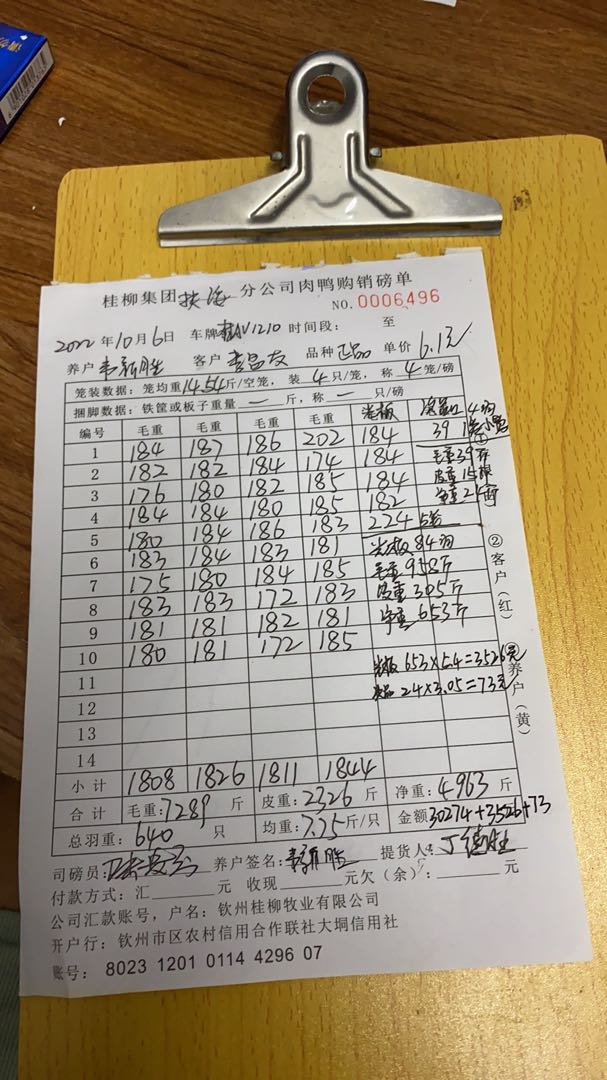 桂柳集团扶海分公司肉鸭购销磅单
NO.0006496
2022年10月6日 车牌:桂AV1210 时间段: 至
养户 客户 品种正品 单价6.1元
笼装数据:笼均重14.54斤/空笼,装4只/笼,称4笼/磅
捆脚数据:铁筐或板子重量—斤,称—只/磅
编号 毛重 毛重 毛重 毛重 光板 次品 4羽
1 184 187 186 202 184 39 1笼
2 182 182 184 174 184 毛重39斤
3 176 180 182 185 184 皮重15斤
4 184 184 180 185 182 净重24斤
5 180 184 186 183 224 5笼
6 183 184 183 181 光板84羽
7 175 180 184 185 毛重958斤
8 183 183 172 183 皮重305斤
9 181 181 182 181 净重653斤
10 180 181 172 185
11 光板 653×5.4=3526元
12 次品 24×3.05=73元
13
14
小计 1808 1826 1811 1844
合计 毛重:7289斤 皮重:2326斤 净重:4963斤
总羽重:640只 均重:7.75斤/只 金额30274+3526+73
司磅员: 养户签名: 提货人:
付款方式:汇 元 收现 元欠(余): 元
公司汇款账号,户名:钦州桂柳牧业有限公司
开户行:钦州市区农村信用合作联社大垌信用社
账号:8023 1201 0114 4296 07
①
②客户(红)
③养户(黄)